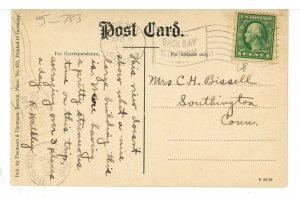 5-783
Post Card.
For Correspondence.
For Address only.
BACK BAY
This view doesn't
show what a nice
large building this
is. We're having
a pretty strenuous
time on this trip,
averaging over 3 places
a day.
Mrs. C. H. Bissell
Southington
Conn.
Pub. by Thomson & Thomson, Boston, Mass. No. 633, Printed in Germany.